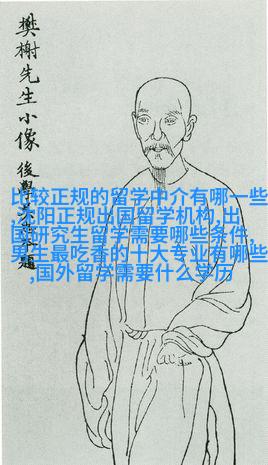 樊榭先生小像
後學
題
比较正规的留学中介有哪一些
,沈阳正规出国留学机构,出
国研究生留学需要哪些条件,
男生最吃香的十大专业有哪些
,国外留学需要什么学历